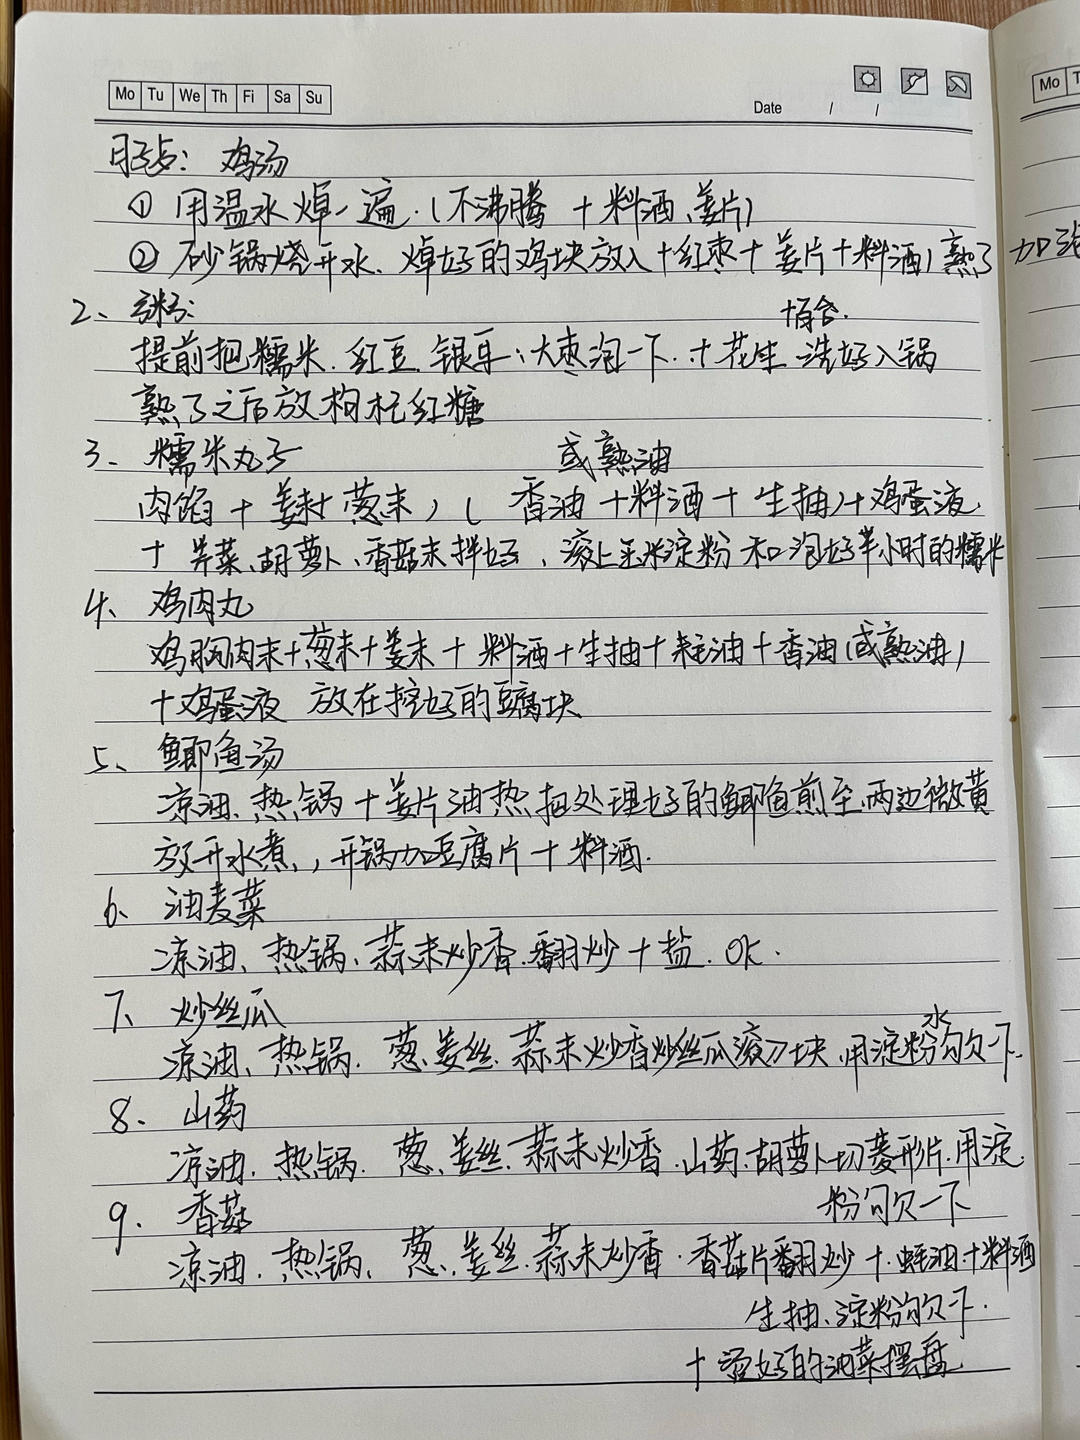 Mo Tu We Th Fi Sa Su
Date / /
Mo T
鸡汤
① 用温水焯一遍.(不沸腾 +料酒、姜片)
② 砂锅烧开水、焯好的鸡块放入+红枣+姜片+料酒)熟了 加
2、粥:
+百合.
提前把糯米.红豆.银耳、大枣泡一下.+花生 洗好入锅
熟了之后放枸杞红糖
3、糯米丸子
或熟油
肉馅+姜末+葱末)(香油+料酒+生抽)+鸡蛋液
+荠菜、胡萝卜、香菇末拌好、滚上玉米淀粉和泡好半小时的糯米
4、鸡肉丸
鸡胸肉末+葱末+姜末+料酒+生抽+耗油+香油(或熟油)
+鸡蛋液 放在挖好的豆腐块
5、鲫鱼汤
凉油、热锅+姜片油热把处理好的鲫鱼煎至两边微黄
放开水煮,开锅加豆腐片+料酒.
6、油麦菜
凉油、热锅、蒜末炒香.翻炒+盐.OK.
7、炒丝瓜
水
凉油、热锅.葱、姜丝.蒜末炒香炒丝瓜滚刀块.用淀粉勾欠一下.
8、山药
凉油.热锅.葱、姜丝.蒜末炒香.山药.胡萝卜切菱形片.用淀
粉勾欠一下
9.香菇
凉油.热锅、葱、姜丝.蒜末炒香.香菇片翻炒+蚝油+料酒
生抽、淀粉勾欠一下.
+烫好的油菜摆盘